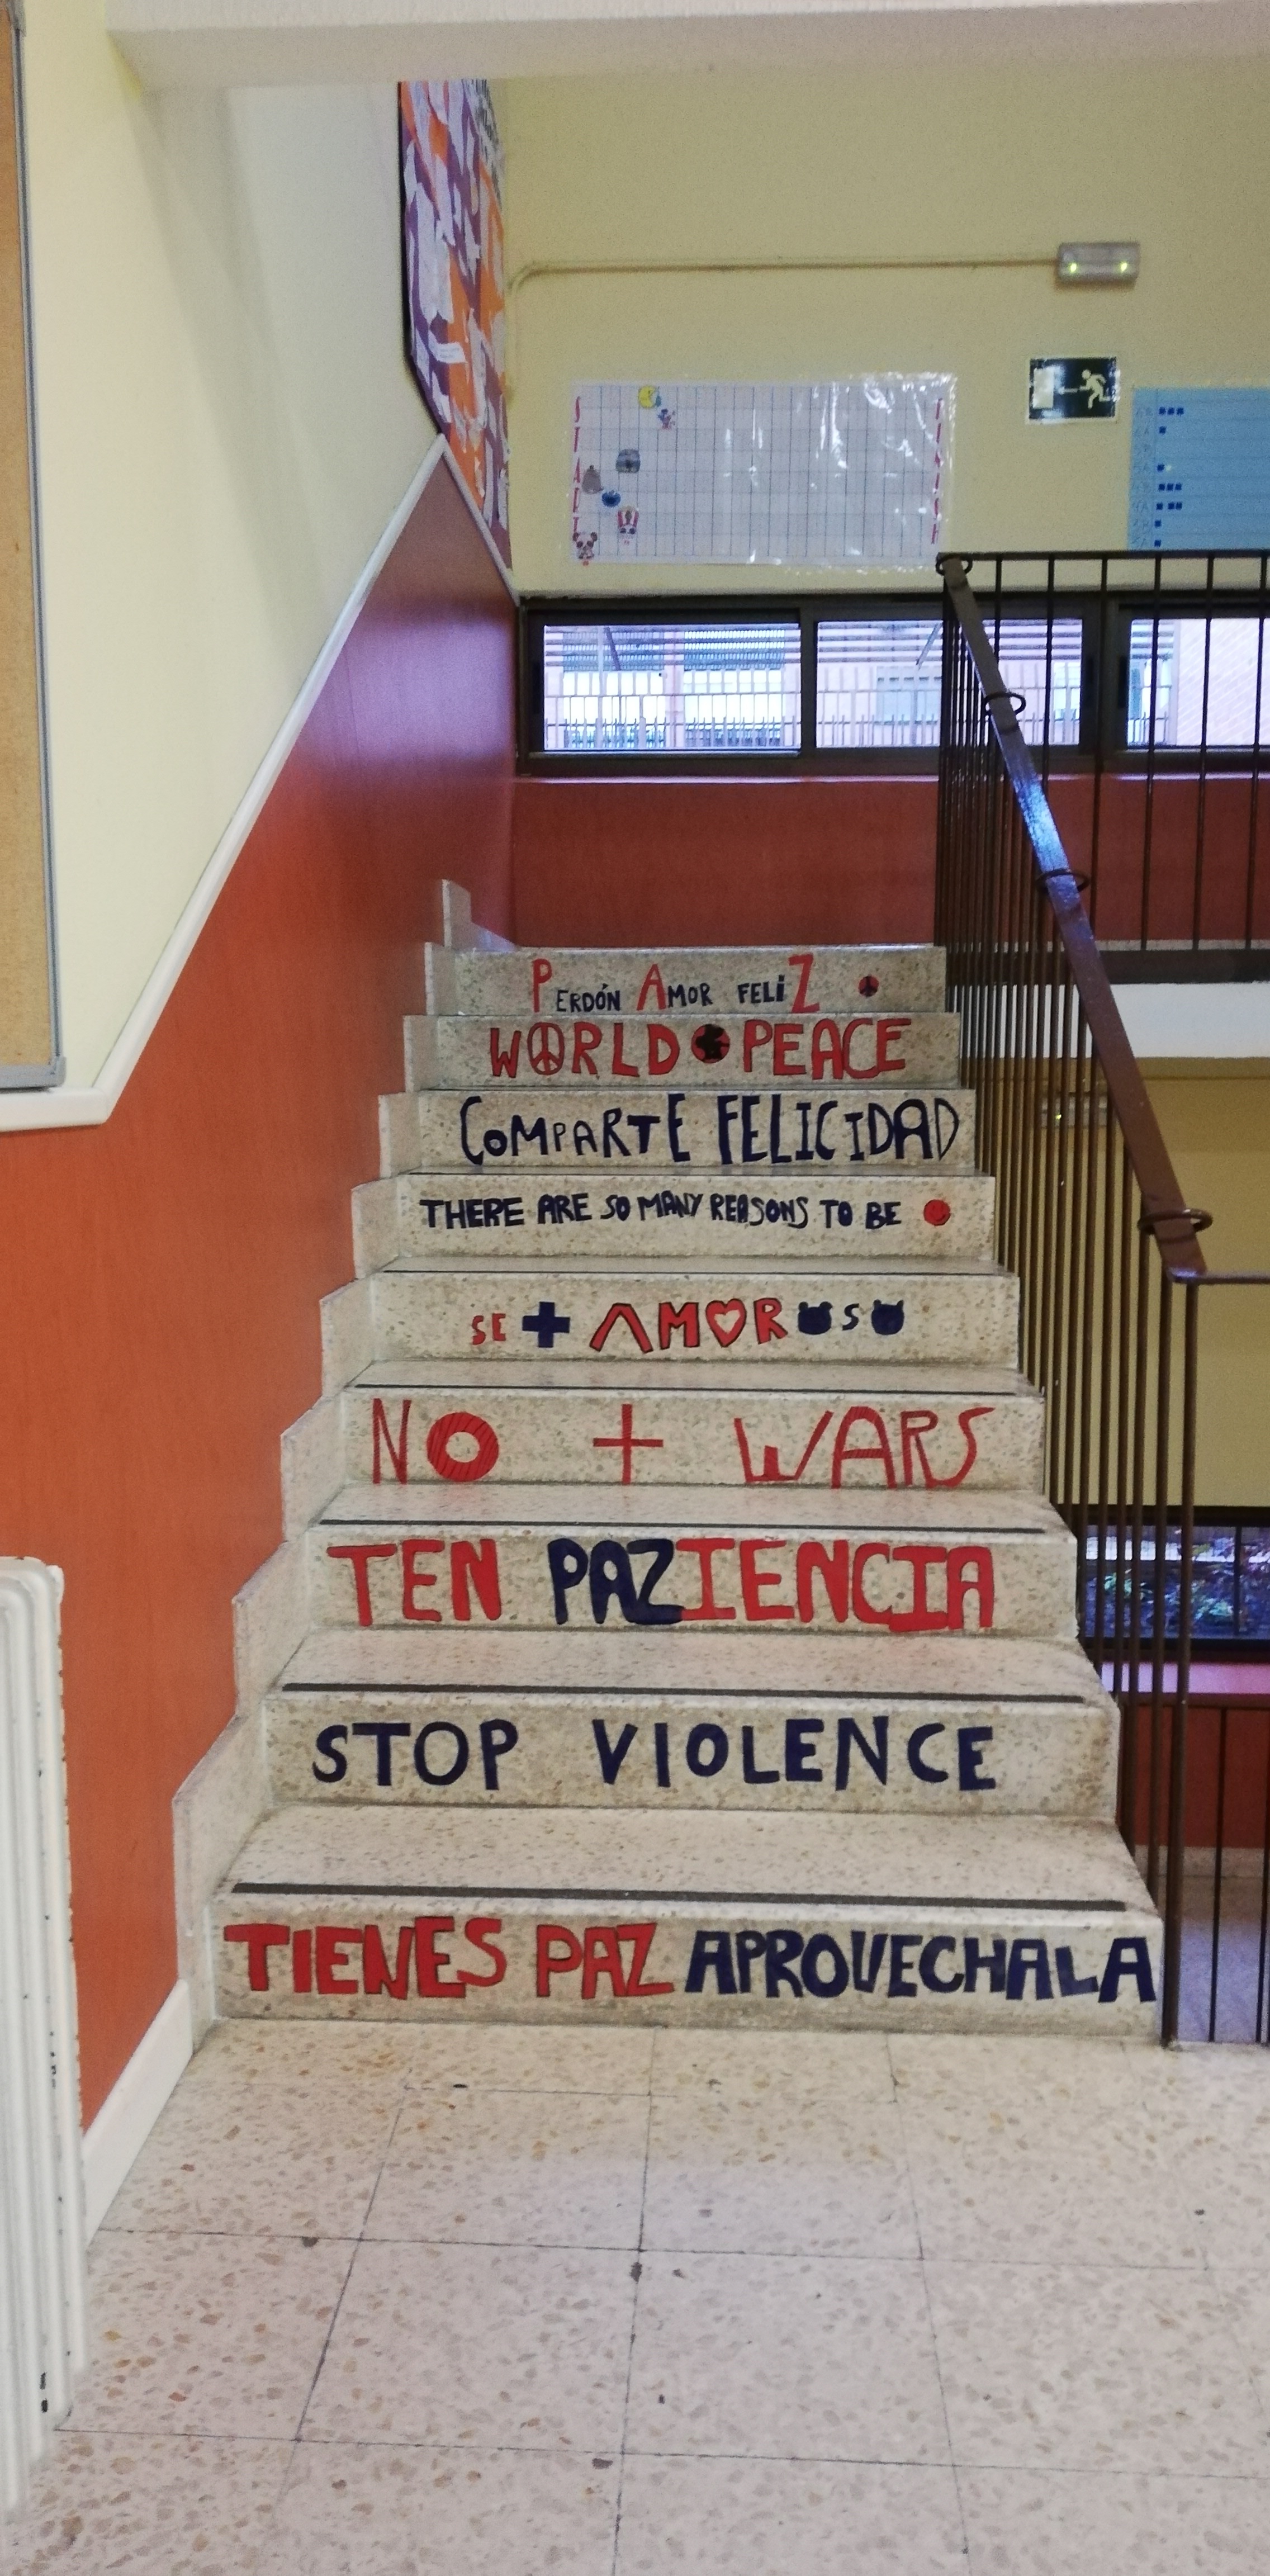 START
FINISH
PERDÓN AMOR FELiZ
WORLD PEACE
COMPARTE FELICIDAD
THERE ARE SO MANY REASONS TO BE
SE + AMOROSO
NO + WARS
TEN PAZIENCIA
STOP VIOLENCE
TIENES PAZ APROVECHALA